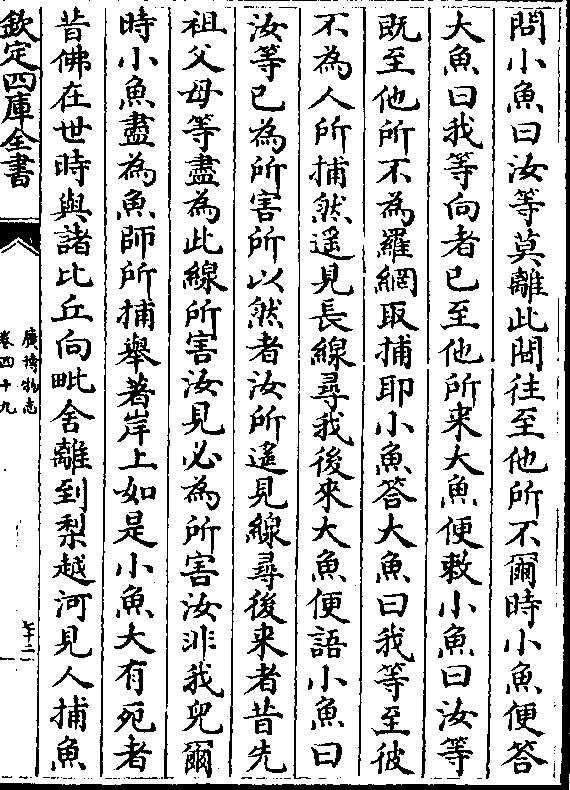 問小魚曰汝等莫離此間往至他所不爾時小魚便答
大魚曰我等向者已至他所来大魚便敕小魚曰汝等
既至他所不為羅網取捕耶小魚答大魚曰我等至彼
不為人所捕然遥見長線尋我後來大魚便語小魚曰
汝等已為所害所以然者汝所遥見線尋後来者昔先
祖父母等盡為此線所害汝見必為所害汝非我兒爾
時小魚盡為魚師所捕舉著岸上如是小魚大有死者
昔佛在世時與諸比丘向毗舍離到梨越河見人捕魚
欽定四庫全書
廣博物志
卷四十九
七十二